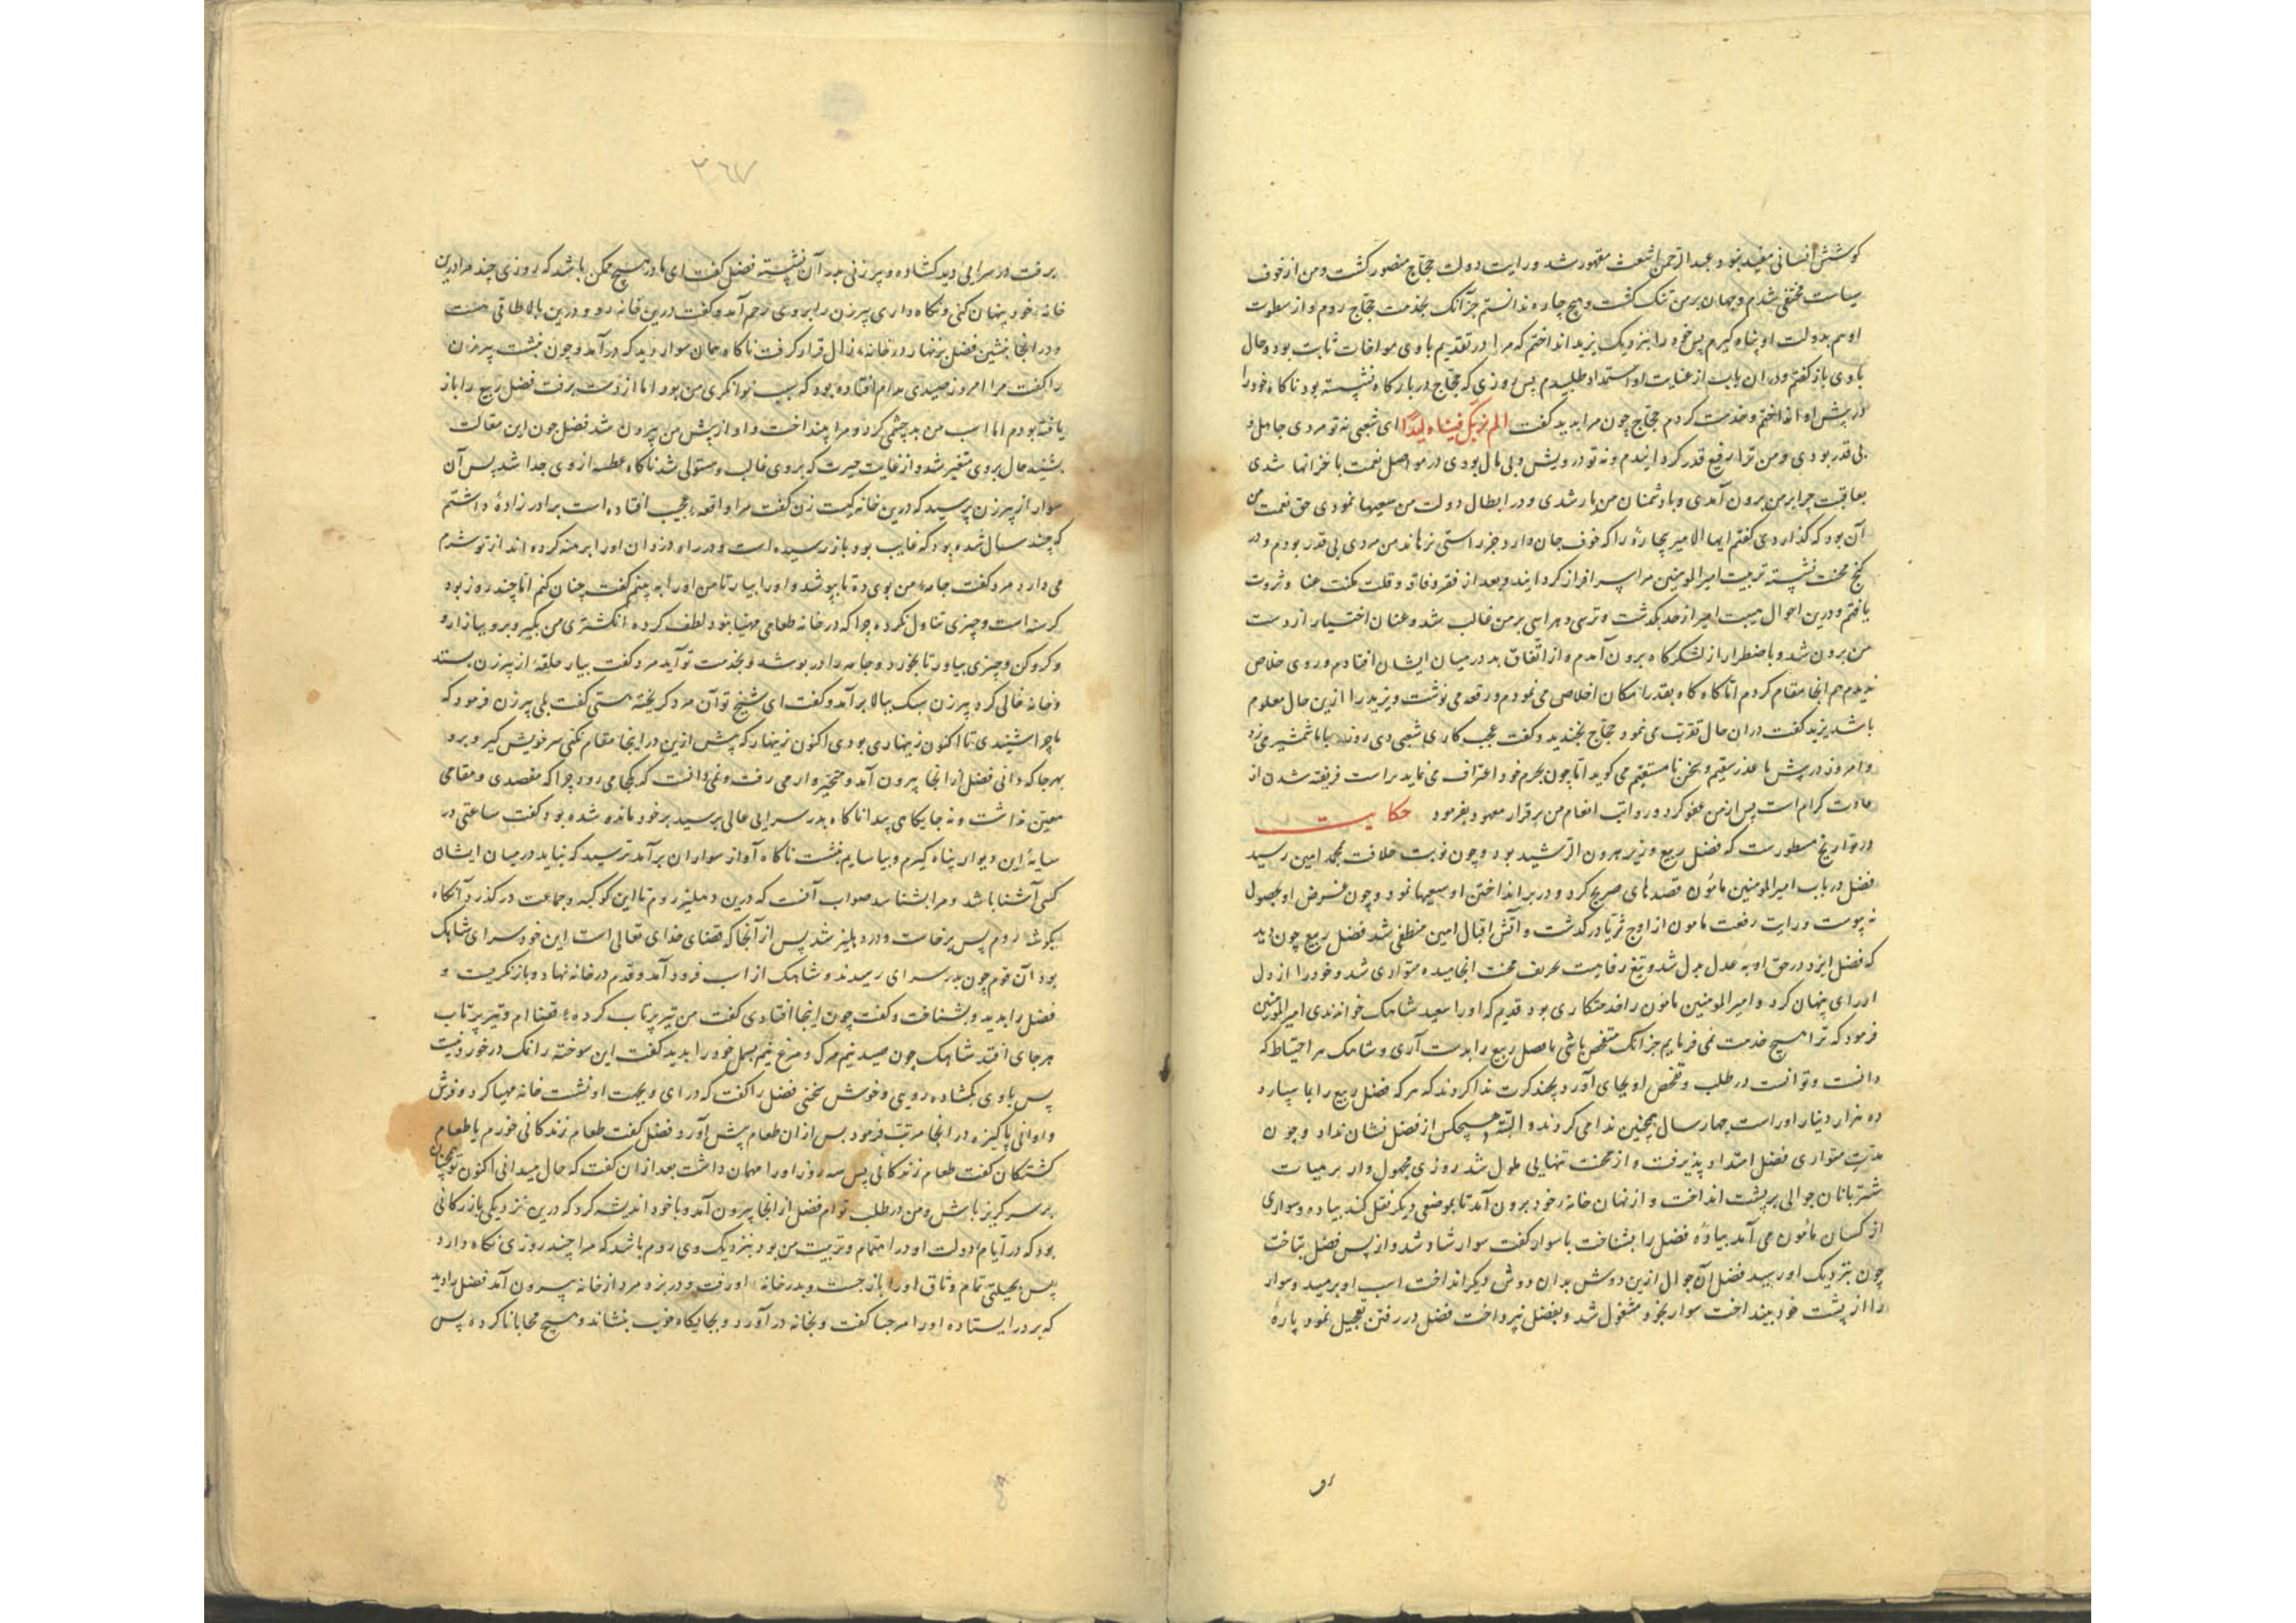 کوشش انسانی مفید نبود و عبدالرحمن اشعث مقهور شد و رایت دولت حجاج منصور کشت و من از خوف
سیاست مختفی شدم و جهان بر من تنک کشت و هیچ چاره ندانستم جز آنک بخدمت حجاج روم و از سطوت
او هم بدولت او پناه کیرم پس خود را بنزدیک یزید انداختم که مرا در تقدیم با وی مواخات ثابت بود و حال
با وی باز کفتم و دران باب از عنایت او استمداد طلبیدم پس روزی که حجاج در بارکاه نشسته بود ناکاه خود را
در پیش او انداختم و خدمت کردم حجاج چون مرا بدید کفت الم نربک فینا ولیدًا ای شعبی نه تو مردی جاهل و
بی قدر بودی و من ترا رفیع قدر کردانیدم و نه تو درویش و بی مال بودی در مواصل نعمت با خزانها شدی
بعاقبت چرا بر من برون آمدی و با دشمنان من یار شدی و در ابطال دولت من سعیها نمودی حق نعمت من
آن بود که کذاردی کفتم ایها الامیر بیچاره را که خوف جان دارد جز راستی نرهاند من مردی بی قدر بودم و در
کنج محنت نشسته تربیت امیرالمومنین مرا سرافراز کردانید و بعد از فقر و فاقه و قلت مکنت غنا و ثروت
یافتم و درین احوال هیبت امیر از حد بکذشت و ترسی و هراسی بر من غالب شد و عنان اختیار از دست
من برون شد و باضطرار از لشکرکاه برون آمدم و از اتفاق بد در میان ایشان افتادم و روی خلاص
ندیدم هم انجا مقام کردم اما کاه کاه بقدر امکان اخلاص می نمودم و رقعه می نوشت و یزید را ازین حال معلوم
باشد یزید کفت دران حال تقرب می نمود حجاج بخندید و کفت عجب کاری شعبی دی روز با ما شمشیر می زد
و امروز در پیش ما عذر سقیم و سخن نا مستقیم می کوید اما چون بجرم خود اعتراف می نماید براست فریفته شدن از
عادت کرام است پس از من عفو کرد و رواتب انعام من بر قرار معهود بفرمود حکایت
در تواریخ مسطورست که فضل ربیع وزیر هرون الرشید بود و چون نوبت خلافت بمحمد امین رسید
فضل در باب امیرالمومنین مامون قصدهای صریح کرد و در بر انداختن او سعیها نمود و چون غرض او بحصول
نه پیوست و رایت رفعت مامون از اوج ثریا در کذشت و آتش اقبال امین منطفی شد فضل ربیع چون دید
که فضل ایزد در حق او به عدل بدل شد و تیغ رفاهیت بحریف محنت انجامیده متواری شد و خود را از دل
ادرای پنهان کرد و امیرالمومنین مامون را خدمتکاری بود قدیم که او را سعید شاهک خواندندی امیرالمومنین
فرمود که ترا هیچ خدمت نمی فرمایم جز آنک متفحص باشی تا فضل ربیع را بدست آری و شاهک هر احتیاط که
دانست و توانست در طلب و تفحص او بجای آورد و بچند کرت ندا کردند که هر که فضل ربیع را بما سپارد
ده هزار دینار او راست چهار سال همچنین ندا می کردند و البته هیچکس از فضل نشان نداد و چون
مدت متواری فضل امتداد پذیرفت و از محنت تنهایی ملول شد روزی مجهول وار بر هیات
شتربانان جوالی بر پشت انداخت و از نهان خانه خود برون آمد تا بموضعی دیکر نقل کند پیاده و سواری
از کسان مامون می آمد پیاده فضل را بشناخت با سوار کفت سوار شاد شد و از پس فضل بتاخت
چون بنزدیک او رسید فضل آن جوال ازین دوش بدان دوش دیکر انداخت اسب او برمید و سوار
را از پشت خود بینداخت سوار بخود مشغول شد و بفضل نپرداخت فضل در رفتن تعجیل نمود پارهٔ
رو
۳۶۷
برفت در سرایی دید کشاده و پیرزنی بدر آن نشسته فضل کفت ای مادر هیچ ممکن باشد که روزی چند مرا درین
خانه خود پنهان کنی و نکاه داری پیرزن را بر وی رحم آمد و کفت درین خانه رو و درین بالا طاقی هست
و در انجا بنشین فضل بنهار در خانه زال قرار کرفت ناکاه همان سوار دید که در آمد و چون بنشست پیرزن
را کفت مرا امروز صیدی بدام افتاده بود که سبب توانکری من بود اما از دست برفت فضل ربیع را باز
یافته بودم اما اسب من بدچشمی کرد و مرا بینداخت و او از پیش من بیرون شد فضل چون این مقالت
بشنید حال بر وی متغیر شد و از غایت حیرت که بر وی غالب و مستولی شد ناکاه عطسه از وی جدا شد پس آن
سوار از پیرزن پرسید که درین خانه کیست زن کفت مرا واقعه عجیب افتاده است برادر زادهٔ داشتم
که چند سال شده بود که غایب بود باز رسیده است و در راه دزدان او را برهنه کرده اند از تو شرم
می دارد مرد کفت جامه من بوی ده تا بپوشد و او را بیار تا من او را به بینم کفت چنان کنم اما چند روز بود
کرسنه است و چیزی تناول نکرده چرا که در خانه طعامی مهیا نبود لطف کرده انکشتری من بکیر و برو ببازار و
و کرو کن و چیزی بیاور تا بخورد و جامه را در پوشد و بخدمت تو آید مرد کفت بیار حلقه از پیرزن بستد
و خانه خالی کرد پیرزن سبک ببالا برآمد و کفت ای شیخ تو آن مرد کریخته هستی کفت بلی پیرزن فرمود که
ماجرا شنیدی تا اکنون زینهاری بودی اکنون زینهار که پیش ازین در اینجا مقام نکنی سر خویش کیر و برو
بهرجا که دانی فضل از انجا بیرون آمد و متحیروار می رفت و نمی دانست که کجا می رود چرا که مقصدی و مقامی
معین نداشت و نه جایکاهی پیدا ناکاه بدر سرایی عالی برسید بر خود مانده شده بود کفت ساعتی در
سایه این دیوار پناه کیرم و بیاسایم بنشست ناکاه آواز سواران برآمد ترسید که نباید در میان ایشان
کسی آشنا باشد و مرا بشناسد صواب آنست که درین دهلیز روم تا این کوکبه و جماعت در کذرد آنکاه
بکوشه روم پس برخاست و در دهلیز شد پس از آنجا که قضای خدای تعالی است این خود سرای شاهک
بود آن قوم چون بدر سرای رسیدند و شاهک از اسب فرود آمد و قدم در خانه نهاد و باز نکریست و
فضل را بدید و بشناخت و کفت چون اینجا افتادی کفت من تیر پرتاب کرده قضا ام و تیر پرتاب
هر جای افتد شاهک چون صید نیم مرک و مرغ نیم بسمل خود را بدید کفت این سوخته را نمک در خورد نیست
پس با وی بکشاده رویی و خوش سخنی فضل را کفت که در ای و بجهت او نشست خانه مهیا کرد و فرش
و اوانی پاکیزه در انجا مرتب فرمود پس ازان طعام پیش آورد فضل کفت طعام زندکانی خورم یا طعام
کشتکان کفت طعام زندکانی پس سه روز او را مهمان داشت بعد ازان کفت که حال میدانی اکنون تو همچنان
بر سر کریز باش و من در طلب توام فضل از انجا بیرون آمد و با خود اندیشه کرد که درین نزدیکی بازرکانی
بود که در ایام دولت او در اهتمام و تربیت من بود بنزدیک وی روم باشد که مرا چند روزی نکاه دارد
پس بحیلتی تمام وثاق او را باز جست و بدر خانه او رفت و در بزد مرد از خانه بیرون آمد فضل را دید
که بر در ایستاده او را مرحبا کفت و بخانه در آورد و بجایکاه خوب بنشاند و هیچ محابا ناکرده پس